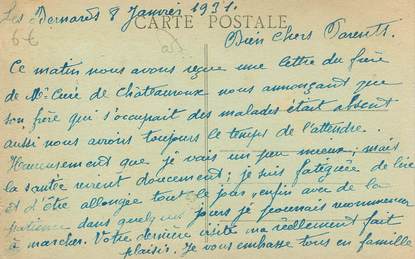 Les Bernards 8 Janvier 1931.
CARTE POSTALE
6€
Bien chers Parents.
Ce matin nous avons reçue une lettre du frère
de Mr Curé de Châteauroux nous annonçant que
son frère qui s'occupait des malades était absent
aussi nous avons toujours le temps de l'attendre.
Heureusement que je vais un peu mieux, mais
la santée revient doucement; je suis fatiguée de lire
et d'être allongée tout le jour, enfin avec de la
patience dans quelques jours je pourrais recommencer
à marcher. Votre dernière visite m'a réellement fait
plaisir. Je vous embrasse tous en famille